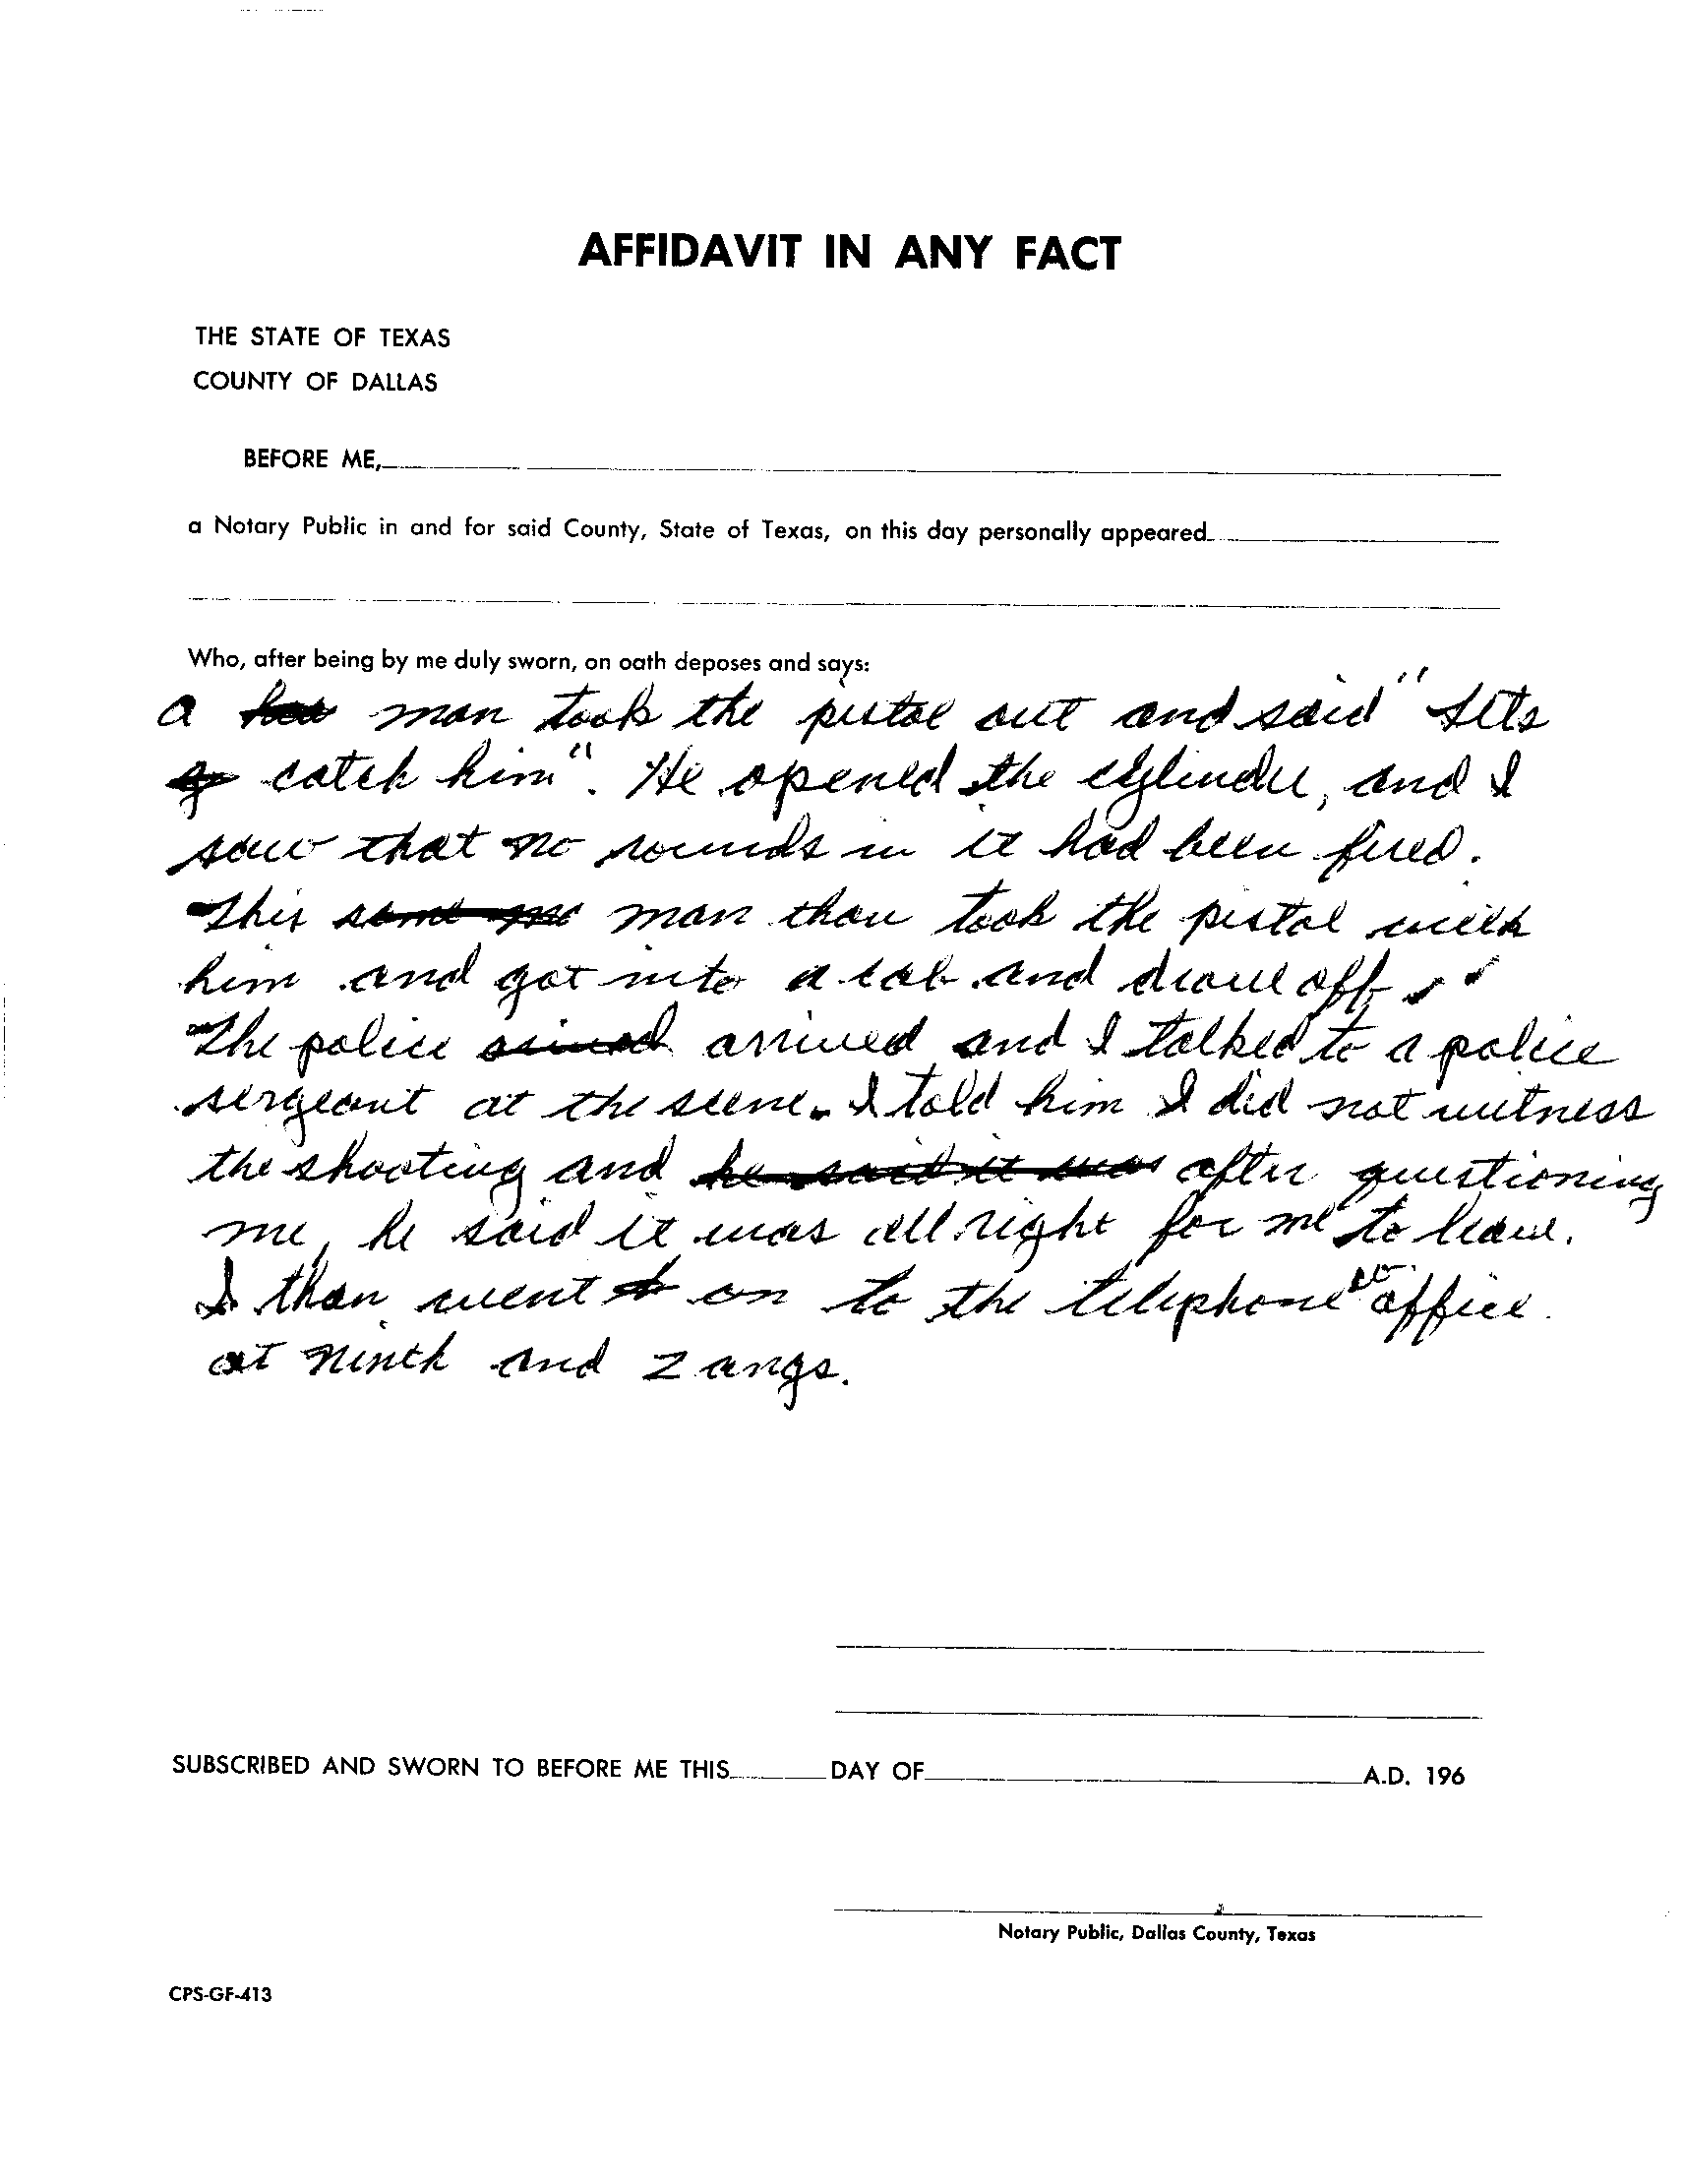 AFFIDAVIT IN ANY FACT
THE STATE OF TEXAS
COUNTY OF DALLAS
BEFORE ME,
a Notary Public in and for said County, State of Texas, on this day personally appeared
Who, after being by me duly sworn, on oath deposes and says:
a man took the pistol out and said "Lets
catch him". He opened the cylinder, and I
saw that no rounds in it had been fired.
This same man than took the pistol with
him and got into a cab and drove off.
The police arrived and I talked to a police
sergeant at the scene. I told him I did not witness
the shooting and he said it was after questioning
me, he said it was all right for me to leave.
I than went on to the telephone co. office
at Ninth and Zangs.
SUBSCRIBED AND SWORN TO BEFORE ME THIS DAY OF A.D. 196
Notary Public, Dallas County, Texas
CPS-GF-413